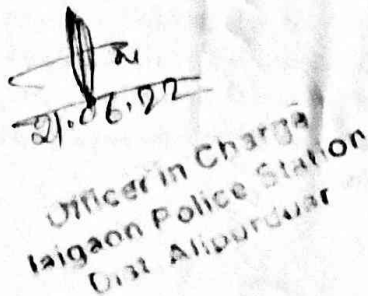 21.06.22
Officer in Charge
Jaigaon Police Station
Dist. Alipurduar